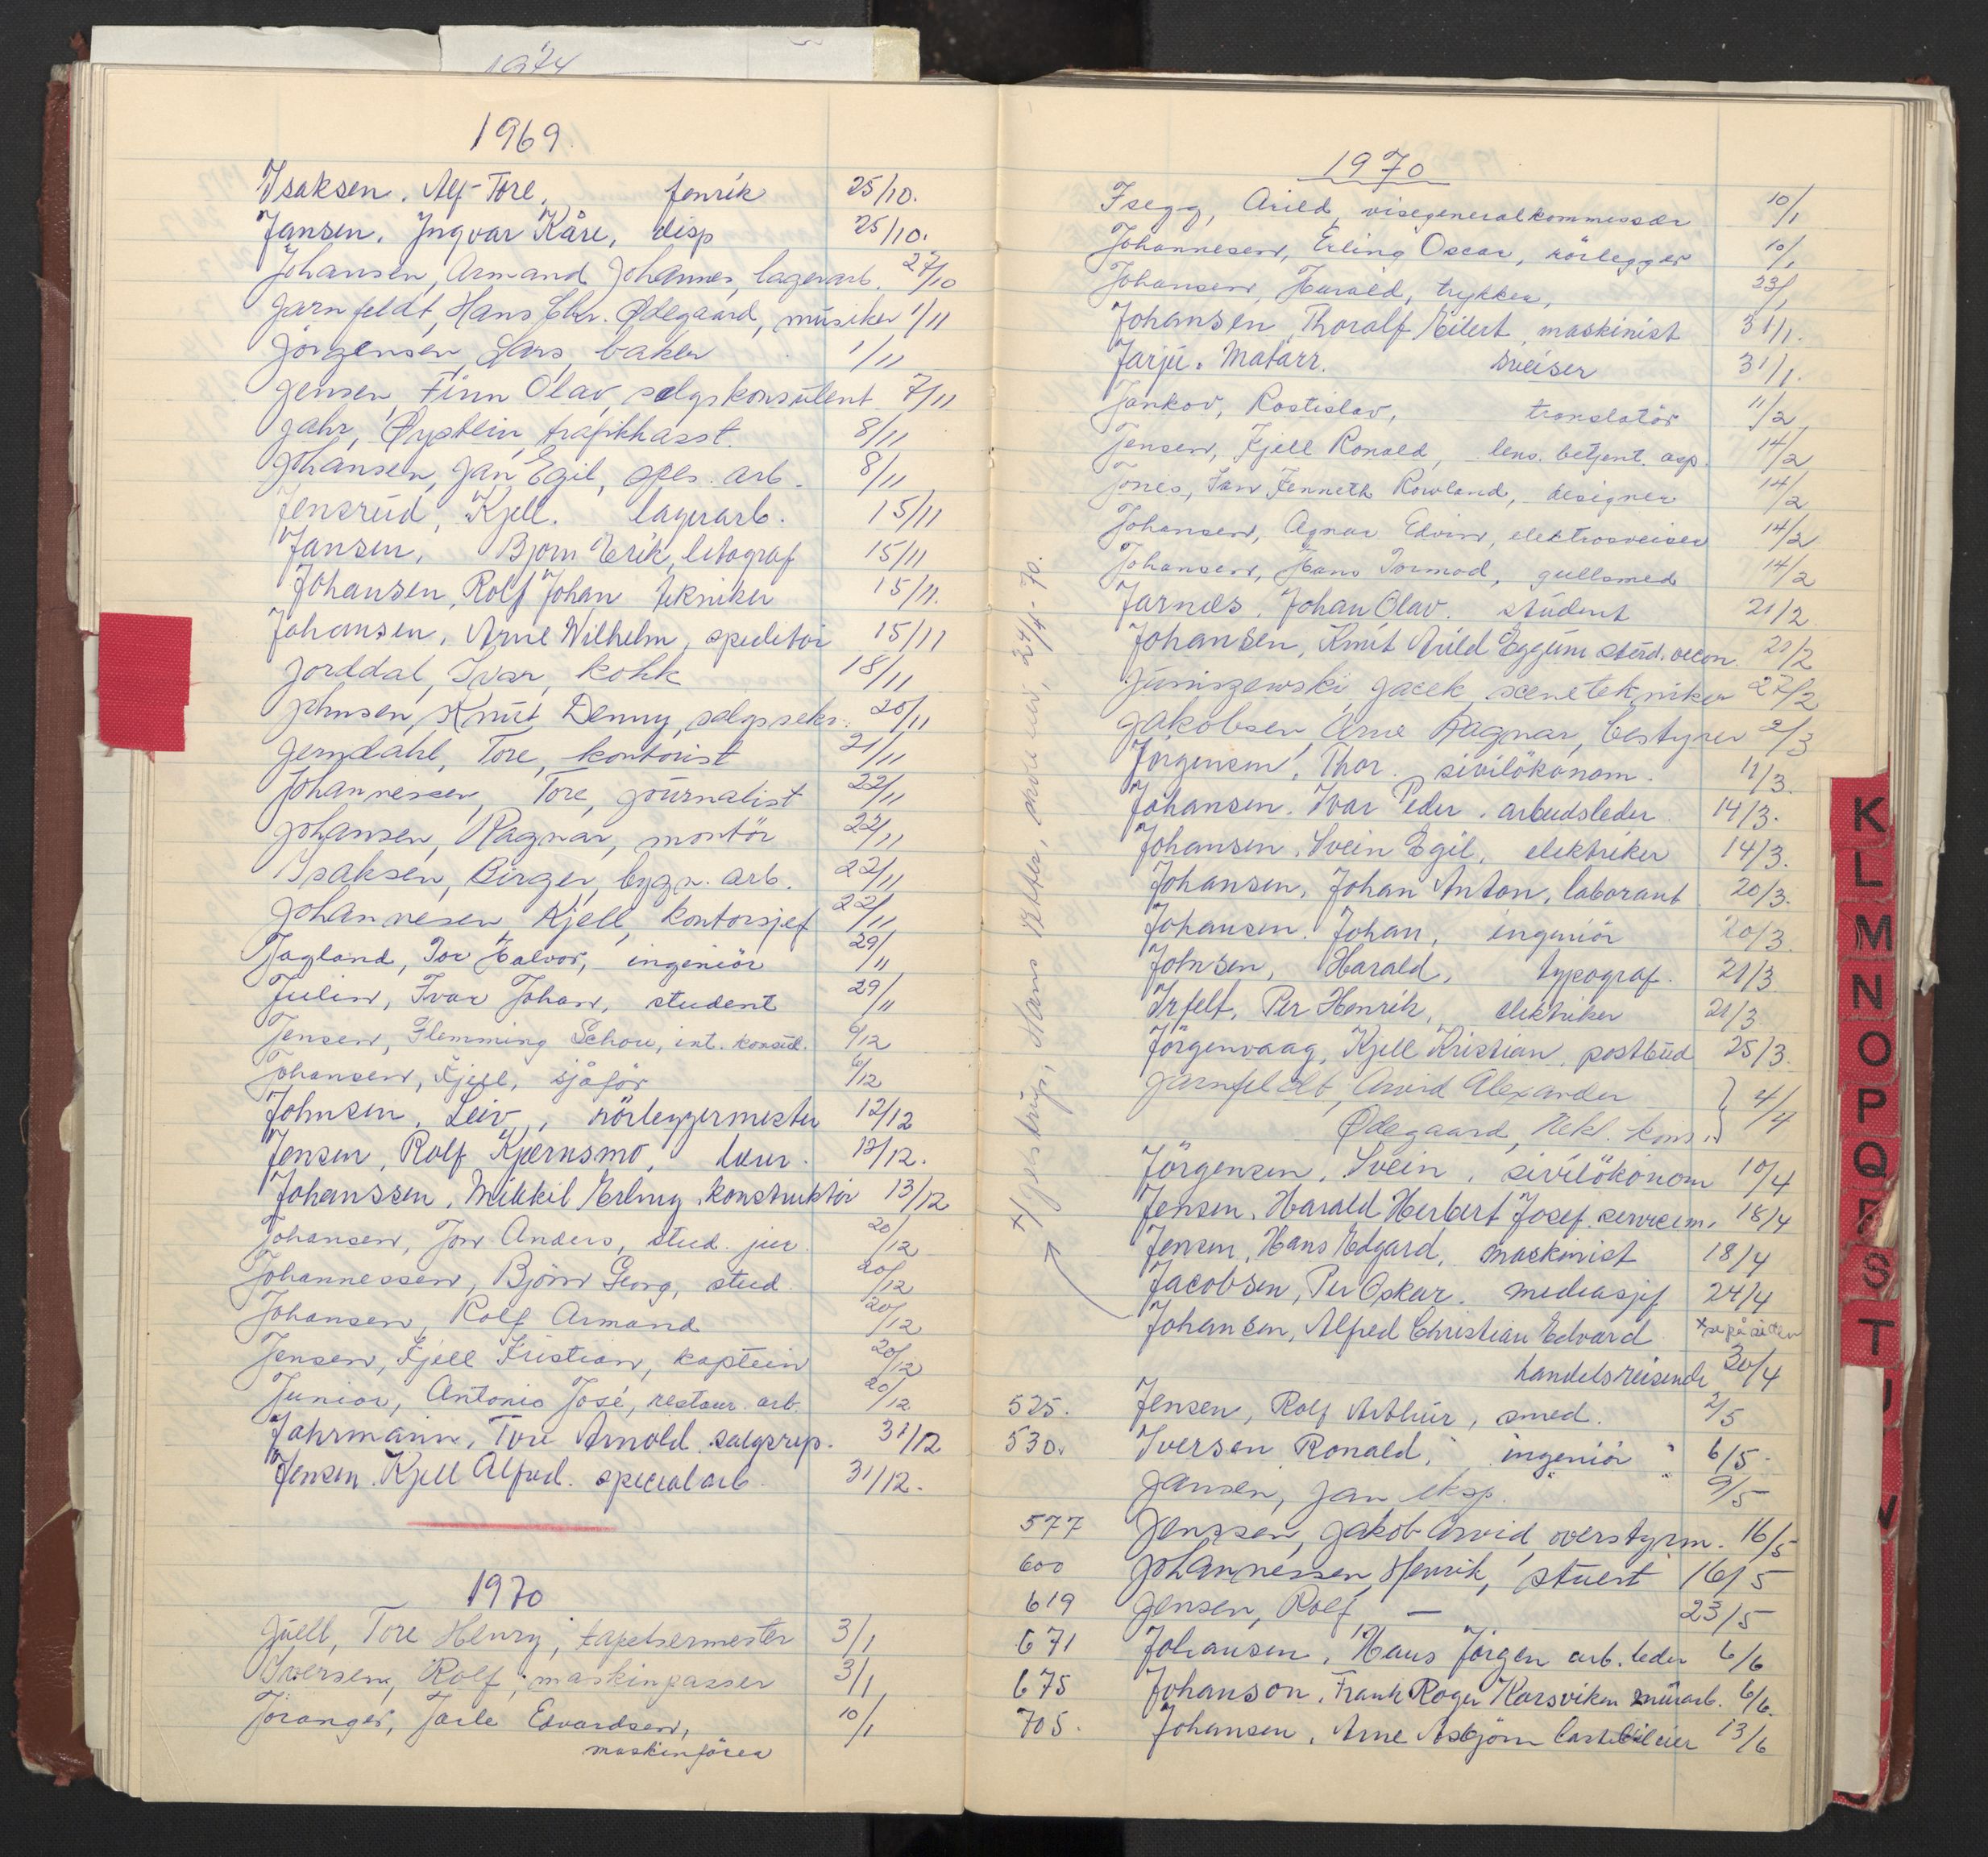 1974
1969
Isaksen, Alf-Tore, fenrik 25/10.
Jansen, Ingvar Kåre, disp 25/10.
Johansen, Armand Johannes, lagerarb. 27/10
Jarnfeldt, Hans Chr. Ødegaard, musiker 1/11
Jörgensen, Lars, baker 1/11
Jensen, Finn Olav, salgskonsulent 7/11
Jahr, Øystein, trafikkasst. 8/11
Johansen, Jan Egil, spes. arb. 8/11
Jensrud, Kjell. lagerarb. 15/11
Jansen, Bjørn Erik, litograf 15/11
Johansen, Rolf Johan tekniker 15/11.
Johansen, Arne Wilhelm, speditör 15/11
Jorddal, Ivar, kokk 18/11
Johnsen, Knut Denny, salgssekr. 20/11
Jerndahl, Tore, kontorist 21/11
Johannessen, Tore, journalist 22/11
Johansen, Ragnar, montör 22/11
Isaksen, Birger, bygn. arb. 22/11
Johannesen, Kjell, kontorsjef 22/11
Jagland, Tor Halvor, ingeniör 29/11
Julin, Ivar Johan, student 29/11
Jensen, Flemming Schou, int. konsul. 6/12
Johansen, Kjell, sjåför 6/12
Johnsen, Leiv, rörleggermester 12/12
Jensen, Rolf Kjærnsmo, lærer. 12/12.
Johanssen, Mikkil Erling, konstruktör 13/12
Johansen, Jon Anders, stud. jur. 20/12
Johannessen, Björn Georg, stud. 20/12
Johansen, Rolf Armand 20/12
Jensen, Kjell Kristian, kaptein 20/12
Junior, Antonio José, restaur. arb. 20/12
Jahrmann, Tore Arnold salgsrep. 31/12
Jensen Kjell Alfred. specialarb. 31/12.
1970
Juell, Tore Henry, tapetsermester 3/1
Iversen, Rolf, maskinpasser 3/1
Jöranger, Jarle Edvardsen, 10/1
maskinförer
1970
Isegg, Arild, visegeneralkommissær 10/1
Johannesen, Erling Oscar, rörlegger 10/1
Johansen, Harald, trykker, 23/1
Johansen, Thoralf Eilert, maskinist 31/1.
Jarju. Matarr. sveiser 31/1.
Jankov, Rostislav, translatör 11/2
Jensen, Kjell Ronald, lens. betjent. asp. 14/2
Jones, Ian Kenneth Rowland, designer 14/2
Johansen, Agnar Edvin, elektrosveiser 14/2
Johansen, Hans Tormod, gullsmed 14/2
Jarnæs, Johan Olav. student 21/2
Johansen, Knut Arild Eggum stud. oecon. 21/2
Juniszewski, Jacek, scenetekniker 27/2
Jakobsen, Arne Ragnar, bestyrer 2/3
Jörgensen, Thor. sivilökonom. 11/3.
Johansen. Ivar Peder. arbeidsleder. 14/3.
Johansen, Svein Egil, elektriker 14/3.
Johansen, Johan Anton, laborant 20/3.
Johansen. Johan, ingeniör 20/3.
Johnsen, Harald, typograf. 21/3
Irfelt, Per Henrik, elektriker 21/3
Jörgenvaag, Kjell Kristian, postbud 25/3.
Jarnfeldt, Arvid Alexander
Ødegaard, rekl. kons. } 4/4
Jörgensen, Svein, sivilökonom 10/4
Jensen, Harald Herbert Josef. servicem. 18/4
Jensen, Hans Edgard, maskinist 18/4
Jacobsen, Per Oskar. mediasjef 24/4
Johansen, Alfred Christian Edvard x se på siden
handelsreisende 30/4
525. Jensen, Rolf Arthur, smed. 2/5
530. Iversen Ronald, ingeniör 6/5.
Jansen, Jan eksp. 9/5
577 Jenssen, Jakob Arvid, overstyrm. 16/5
600 Johannessen, Henrik, stuert 16/5
619 Jensen, Rolf, — 23/5
671 Johansen, Hans Jörgen arb. leder 6/6
675 Johanson, Frank Roger Korsviken murarb. 6/6.
705. Johansen, Arne Asbjörn lastebileier 13/6
x/ Jelstrup, Hans Petter, 24/4-70.
K
L
M
N
O
P
Q
R
S
T
U
V